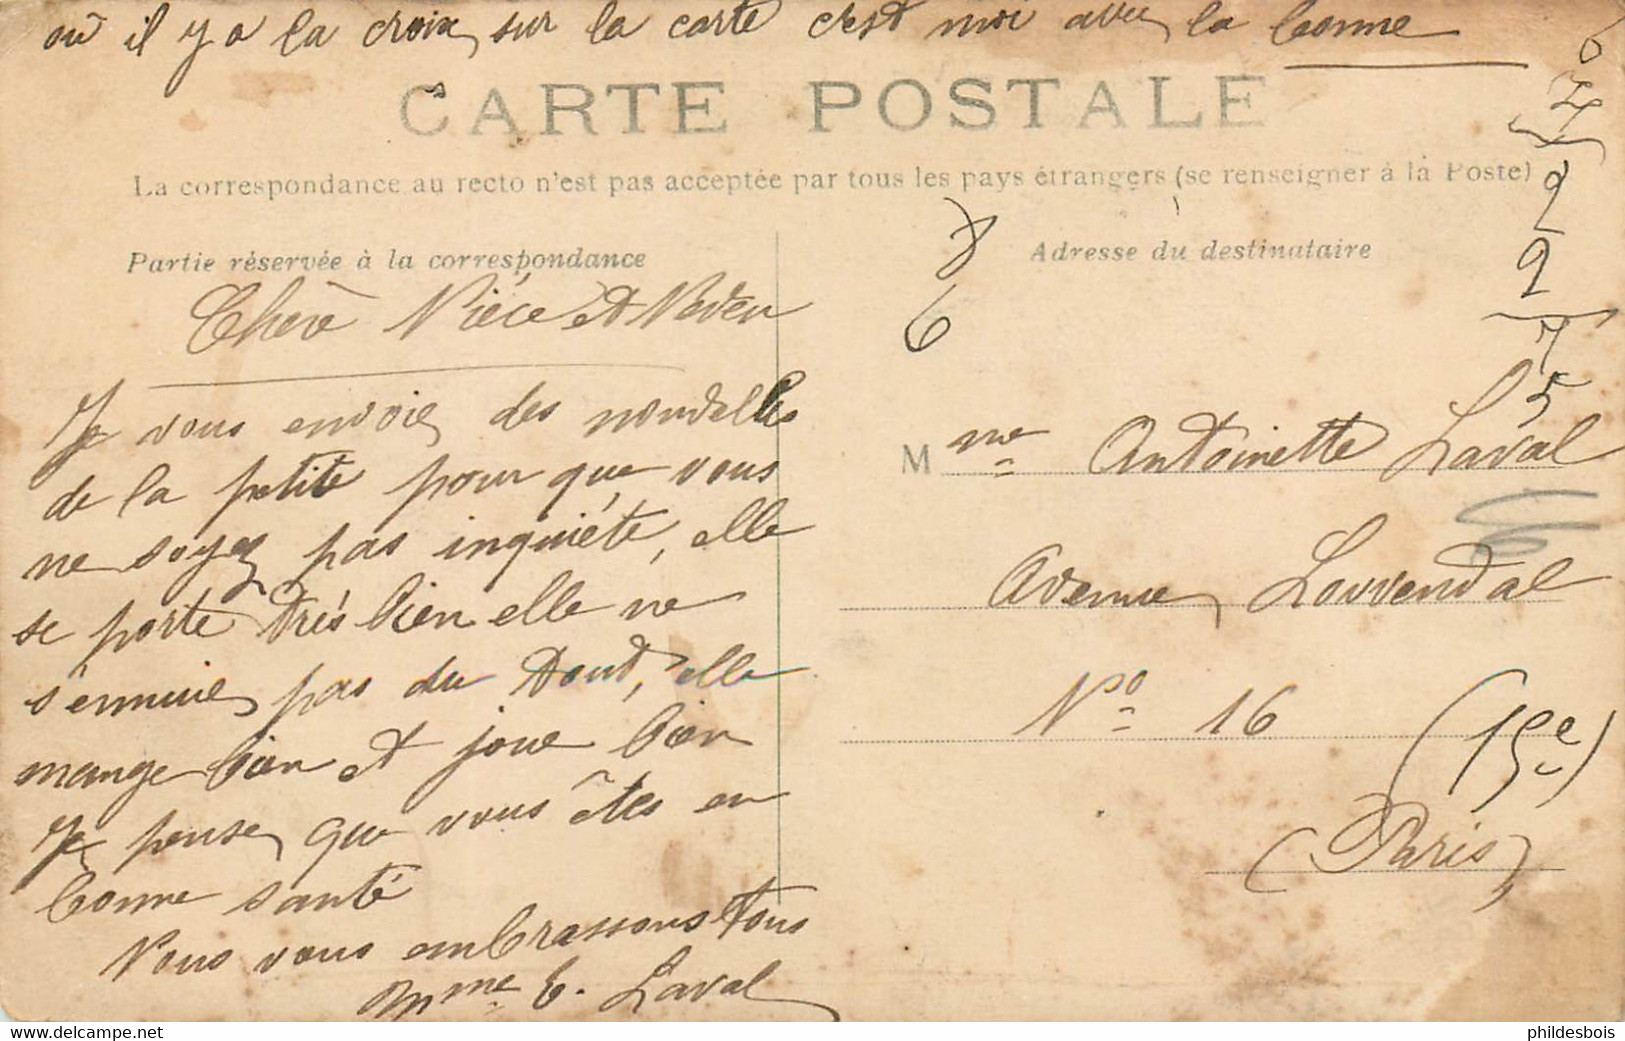 où il y a la croix sur la carte c'est moi avec la bonne
CARTE POSTALE
La correspondance au recto n'est pas acceptée par tous les pays étrangers (se renseigner à la Poste)
Partie réservée à la correspondance
Chère Nièce et Neveu
Je vous envoie des nouvelles
de la petite pour que vous
ne soyez pas inquiéte, elle
se porte très bien elle ne
s'ennuie pas du tout, elle
mange bien et joue bien
Je pense que vous êtes en
bonne santé
Nous vous embrassons tous
Mme E. Laval
Adresse du destinataire
Mme Antoinette Laval
Avenue Lowendal
No 16 (15e)
(Paris)
6
2
2
7
5
6
www.delcampe.net
phildesbois